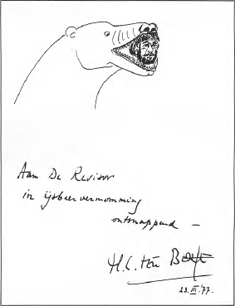 Aan De Revisor
in ijsbeervermomming
ontsnappend —
H.C. ten Berge
23.III.77.